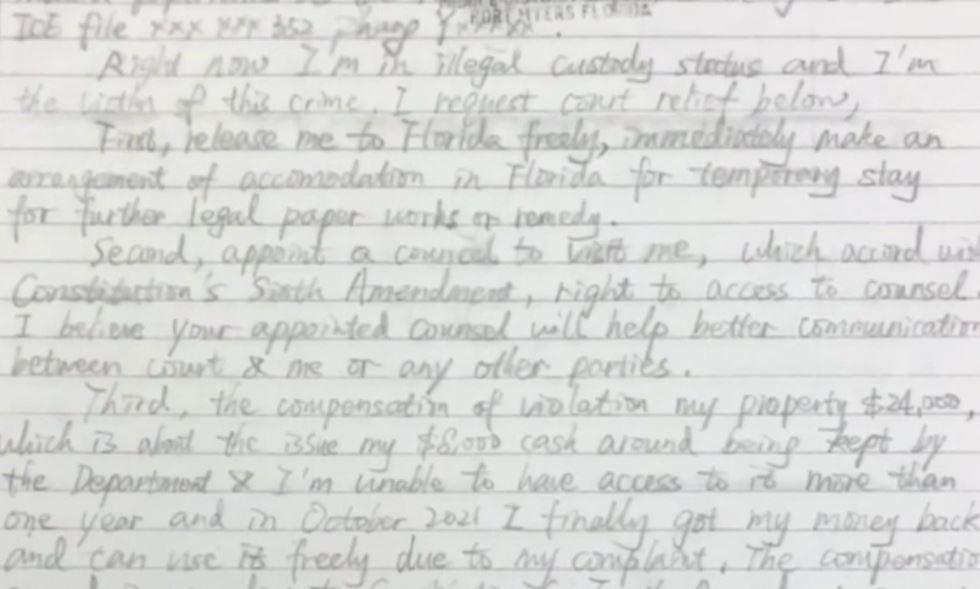 FORT MYERS FLORIDA
ICE file xxx xxx 352
Right now I'm in illegal custody status and I'm
the victim of this crime. I request court relief below,
First, release me to Florida freely, immediately make an
arrangement of accomodation in Florida for temporary stay
for further legal paper works or remedy.
Second, appoint a councel to visit me, which accord
Constitution's Sixth Amendment, right to access to counsel.
I believe your appointed counsel will help better communicatio
between court & me or any other parties.
Third, the compensation of violation my property $24,000,
which is about the issue my $8,000 cash around being kept by
the Department & I'm unable to have access to it more than
one year and in October 2021 I finally got my money back
and can use it freely due to my complaint. The compensatio